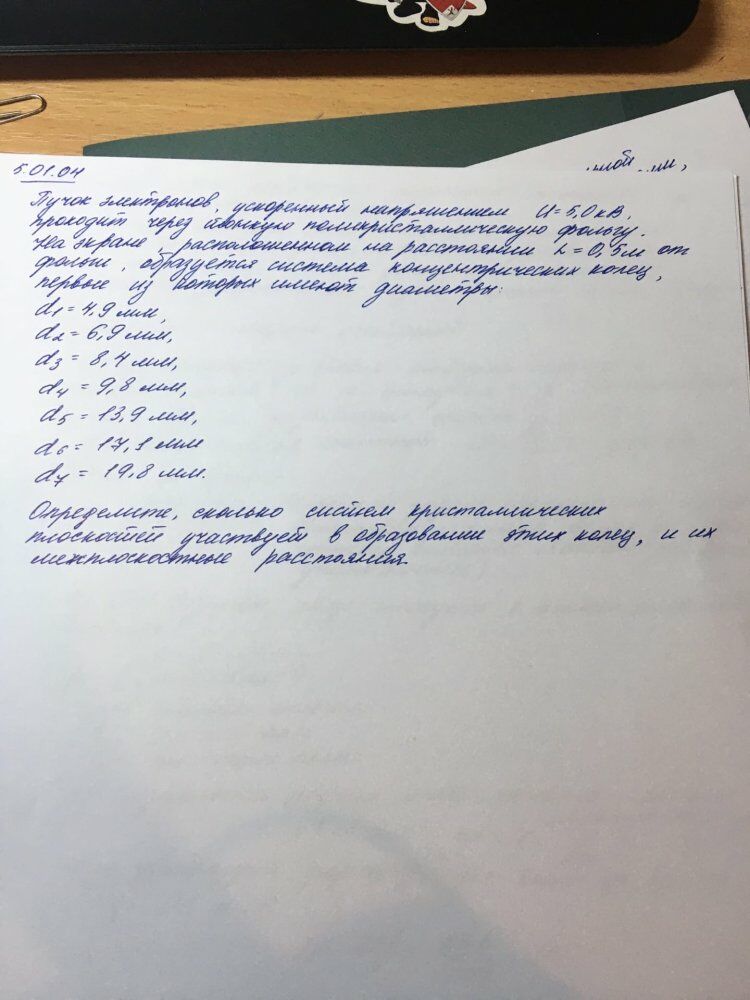 5.01.04
Пучок электронов, ускоренный напряжением U=5,0 кВ,
проходит через тонкую поликристаллическую фольгу.
На экране, расположенном на расстоянии L=0,5м от
фольги, образуется система концентрических колец,
первые из которых имеют диаметры:
d1 = 4,9 мм,
d2 = 6,9 мм,
d3 = 8,4 мм,
d4 = 9,8 мм,
d5 = 13,9 мм,
d6 = 17,1 мм
d7 = 19,8 мм.
Определите, сколько систем кристаллических
плоскостей участвует в образовании этих колец, и их
межплоскостные расстояния.